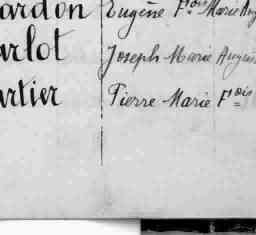 ardon Eugène F.ois Marie Aug
arlot Joseph Marie Augus
artier Pierre Marie F.ois